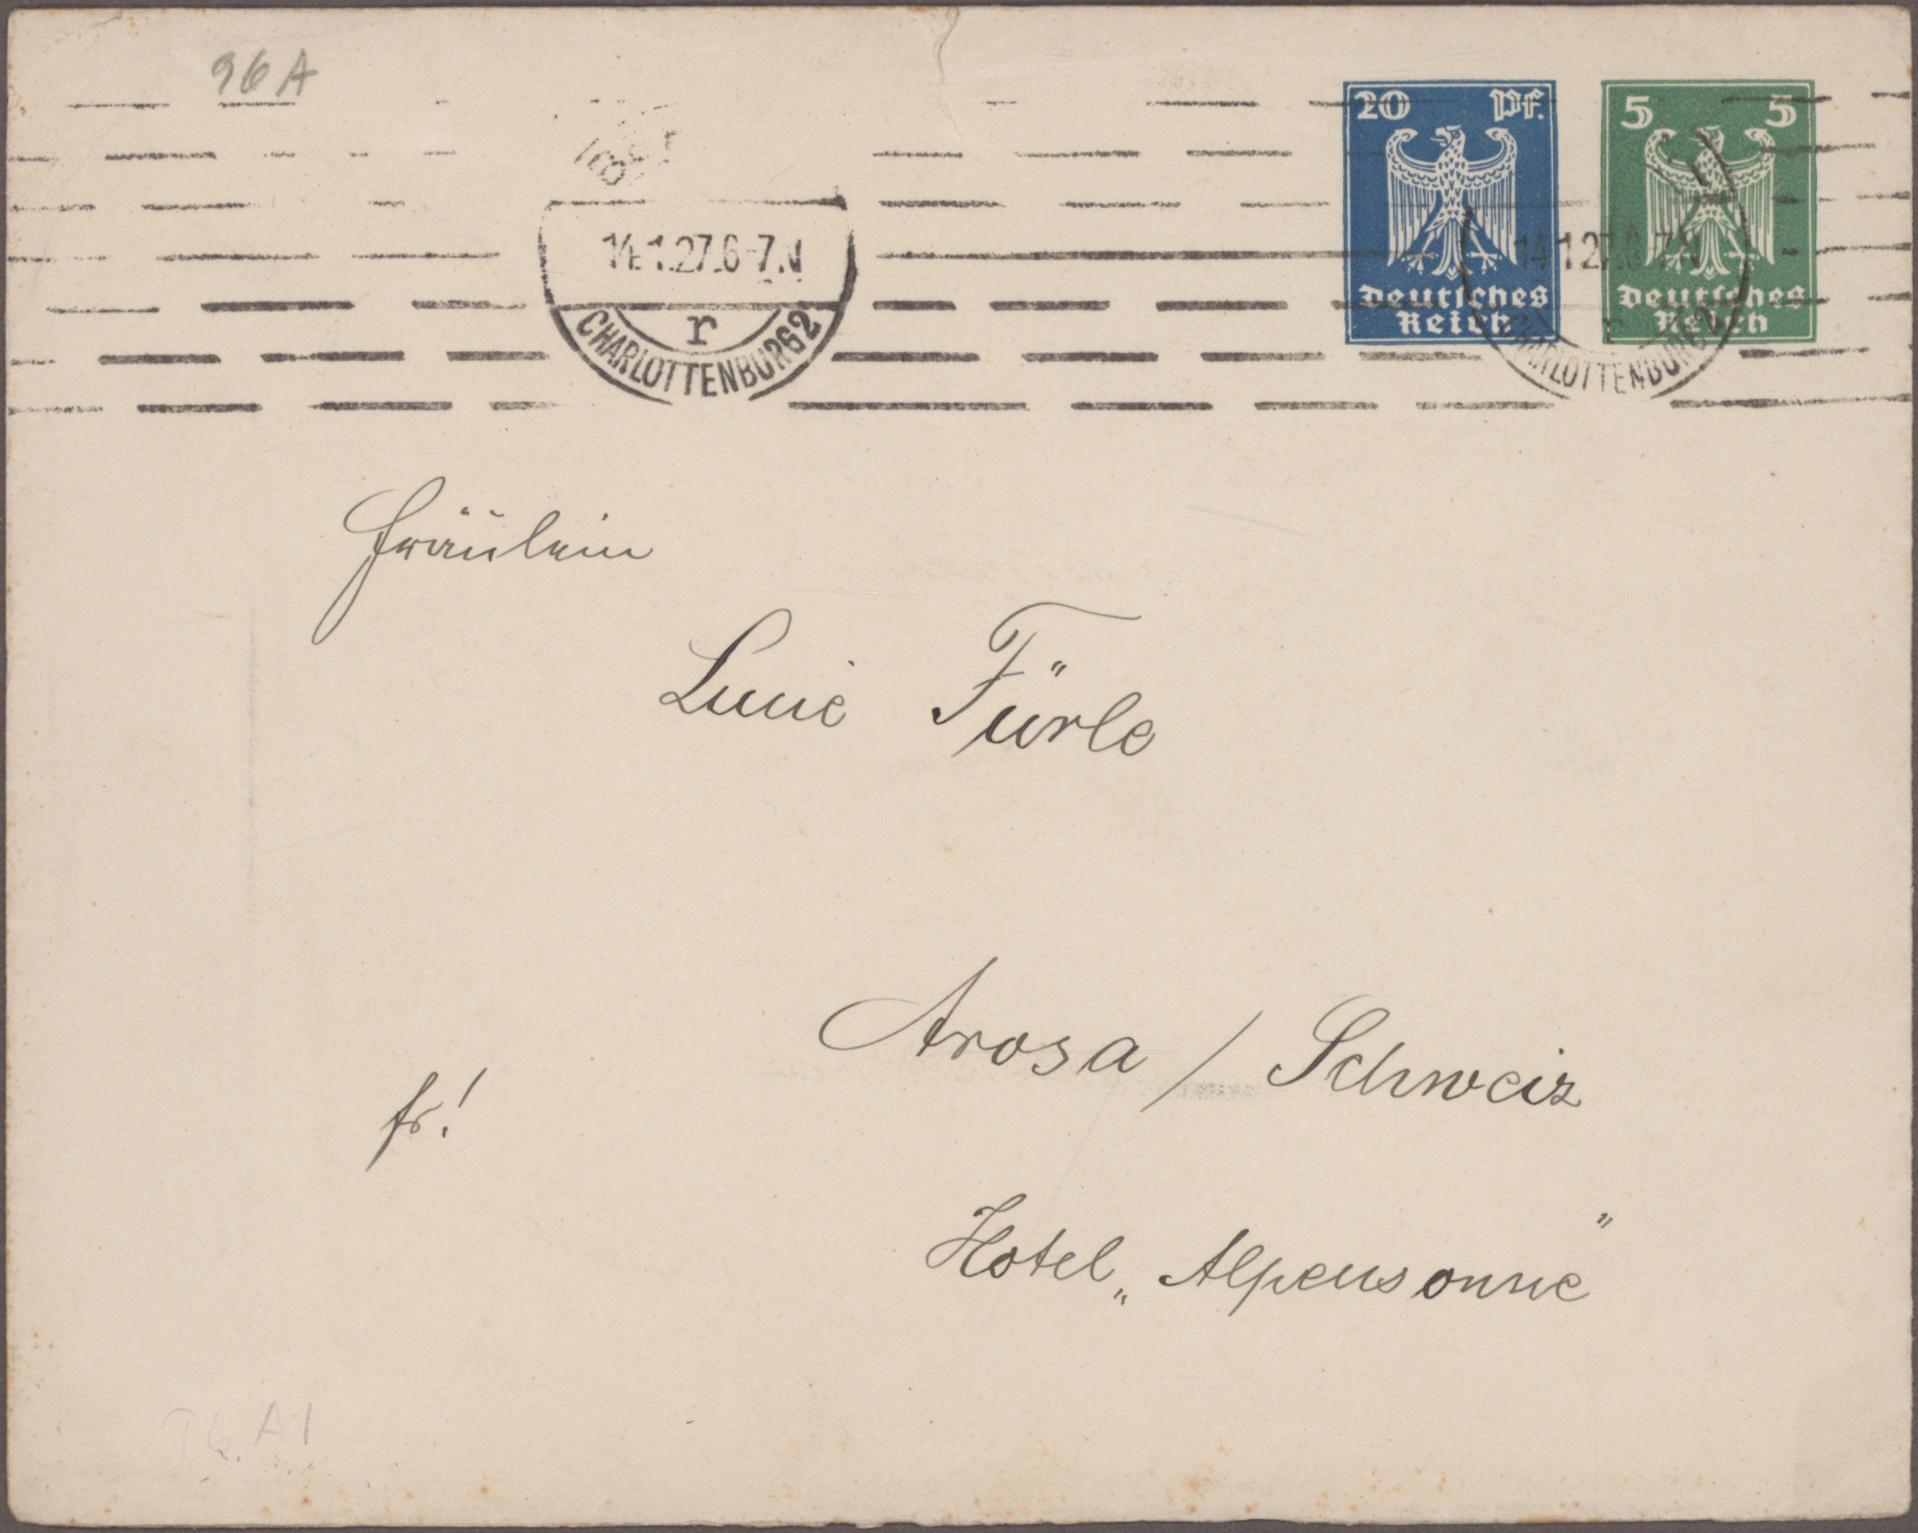 96 A
20 Pf.
Deutsches
Reich
5 5
Deutsches
Reich
14.1.27.6-7.N
r
CHARLOTTENBURG 2
14.1.27.6-7.N
r
CHARLOTTENBURG 2
Fräulein
Lucie Fürle
Arosa / Schweiz
fr!
Hotel „Alpensonne"